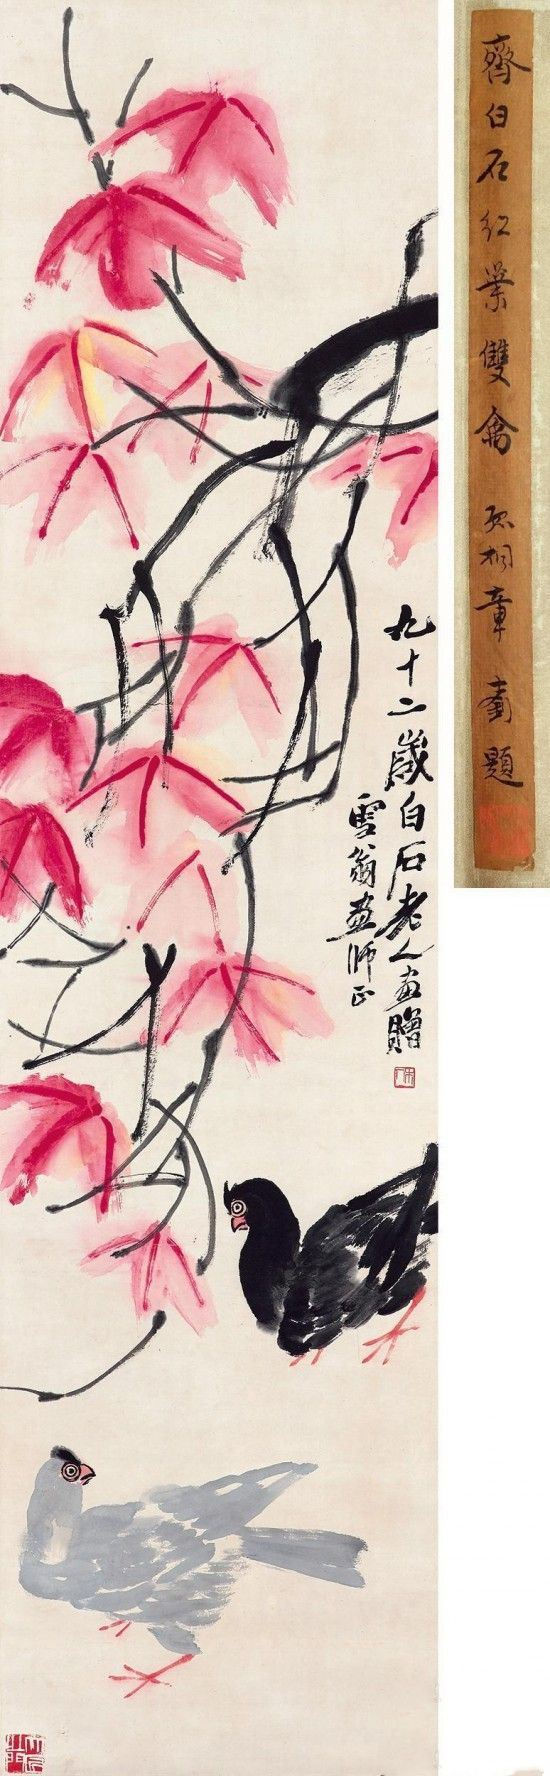 九十二歲白石老人畫贈
雪翁畫師正
齊白石紅葉雙禽
章 題